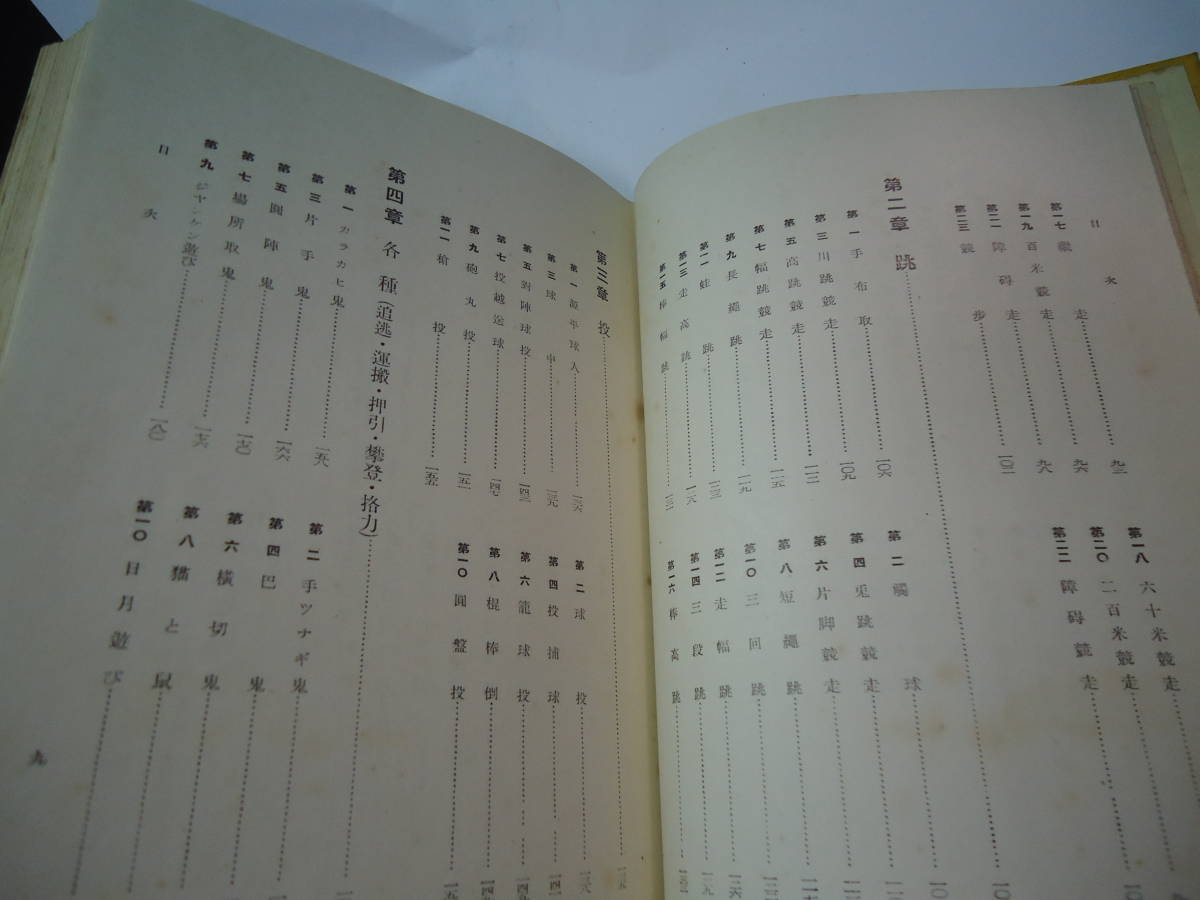 目次
第一七 繼走……九三
第一八 六十米競走
第一九 百米競走……九六
第二〇 二百米競走
第二一 障碍走……九八
第二二 障碍競走
第二三 競歩……一〇二
第二章 跳
第一 手布取……一〇六
第二 觸球
第三 川跳競走……一〇九
第四 兎跳競走
第五 高跳競走……一一二
第六 片脚競走
第七 幅跳競走……一一五
第八 短繩跳
第九 長繩跳……一一九
第一〇 三回跳
第一一 蛙跳……一二三
第一二 走幅跳
第一三 走高跳
第一四 三段跳
第一五 棒幅跳
第一六 棒高跳
第三章 投
第一 源平球入……一三六
第二 球投
第三 球中……一三九
第四 投捕球
第五 對陣球投……一四三
第六 籠球投
第七 投越送球……一四七
第八 棍棒倒
第九 砲丸投……一五一
第一〇 圓盤投
第一一 槍投……一五五
第四章 各種(追逃・運搬・押引・攀登・挌力)
第一 カラカヒ鬼……一五九
第二 手ツナギ鬼
第三 片手鬼……一六六
第四 巴鬼
第五 圓陣鬼……一七〇
第六 橫切鬼
第七 場所取鬼……一七六
第八 猫と鼠
第九 ジヤンケン遊び……一八〇
第一〇 日月遊び
目次
九